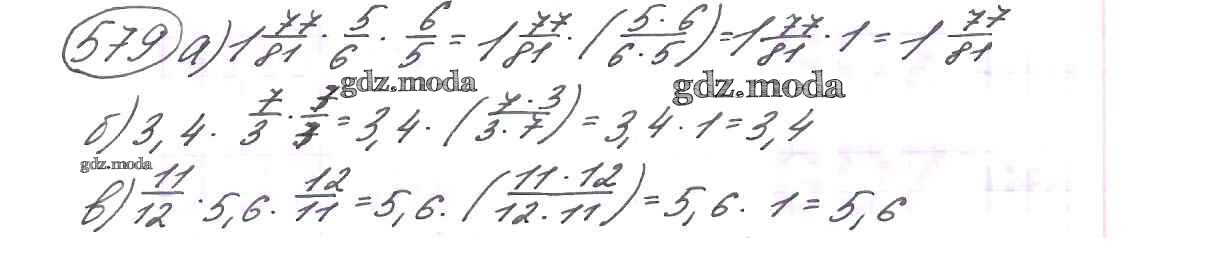 579 а) 1 77/81 · 5/6 · 6/5 = 1 77/81 · (5·6/6·5) = 1 77/81 · 1 = 1 77/81
gdz.moda gdz.moda
б) 3,4 · 7/3 · 3/7 = 3,4 · (7·3/3·7) = 3,4 · 1 = 3,4
gdz.moda
в) 11/12 · 5,6 · 12/11 = 5,6 · (11·12/12·11) = 5,6 · 1 = 5,6